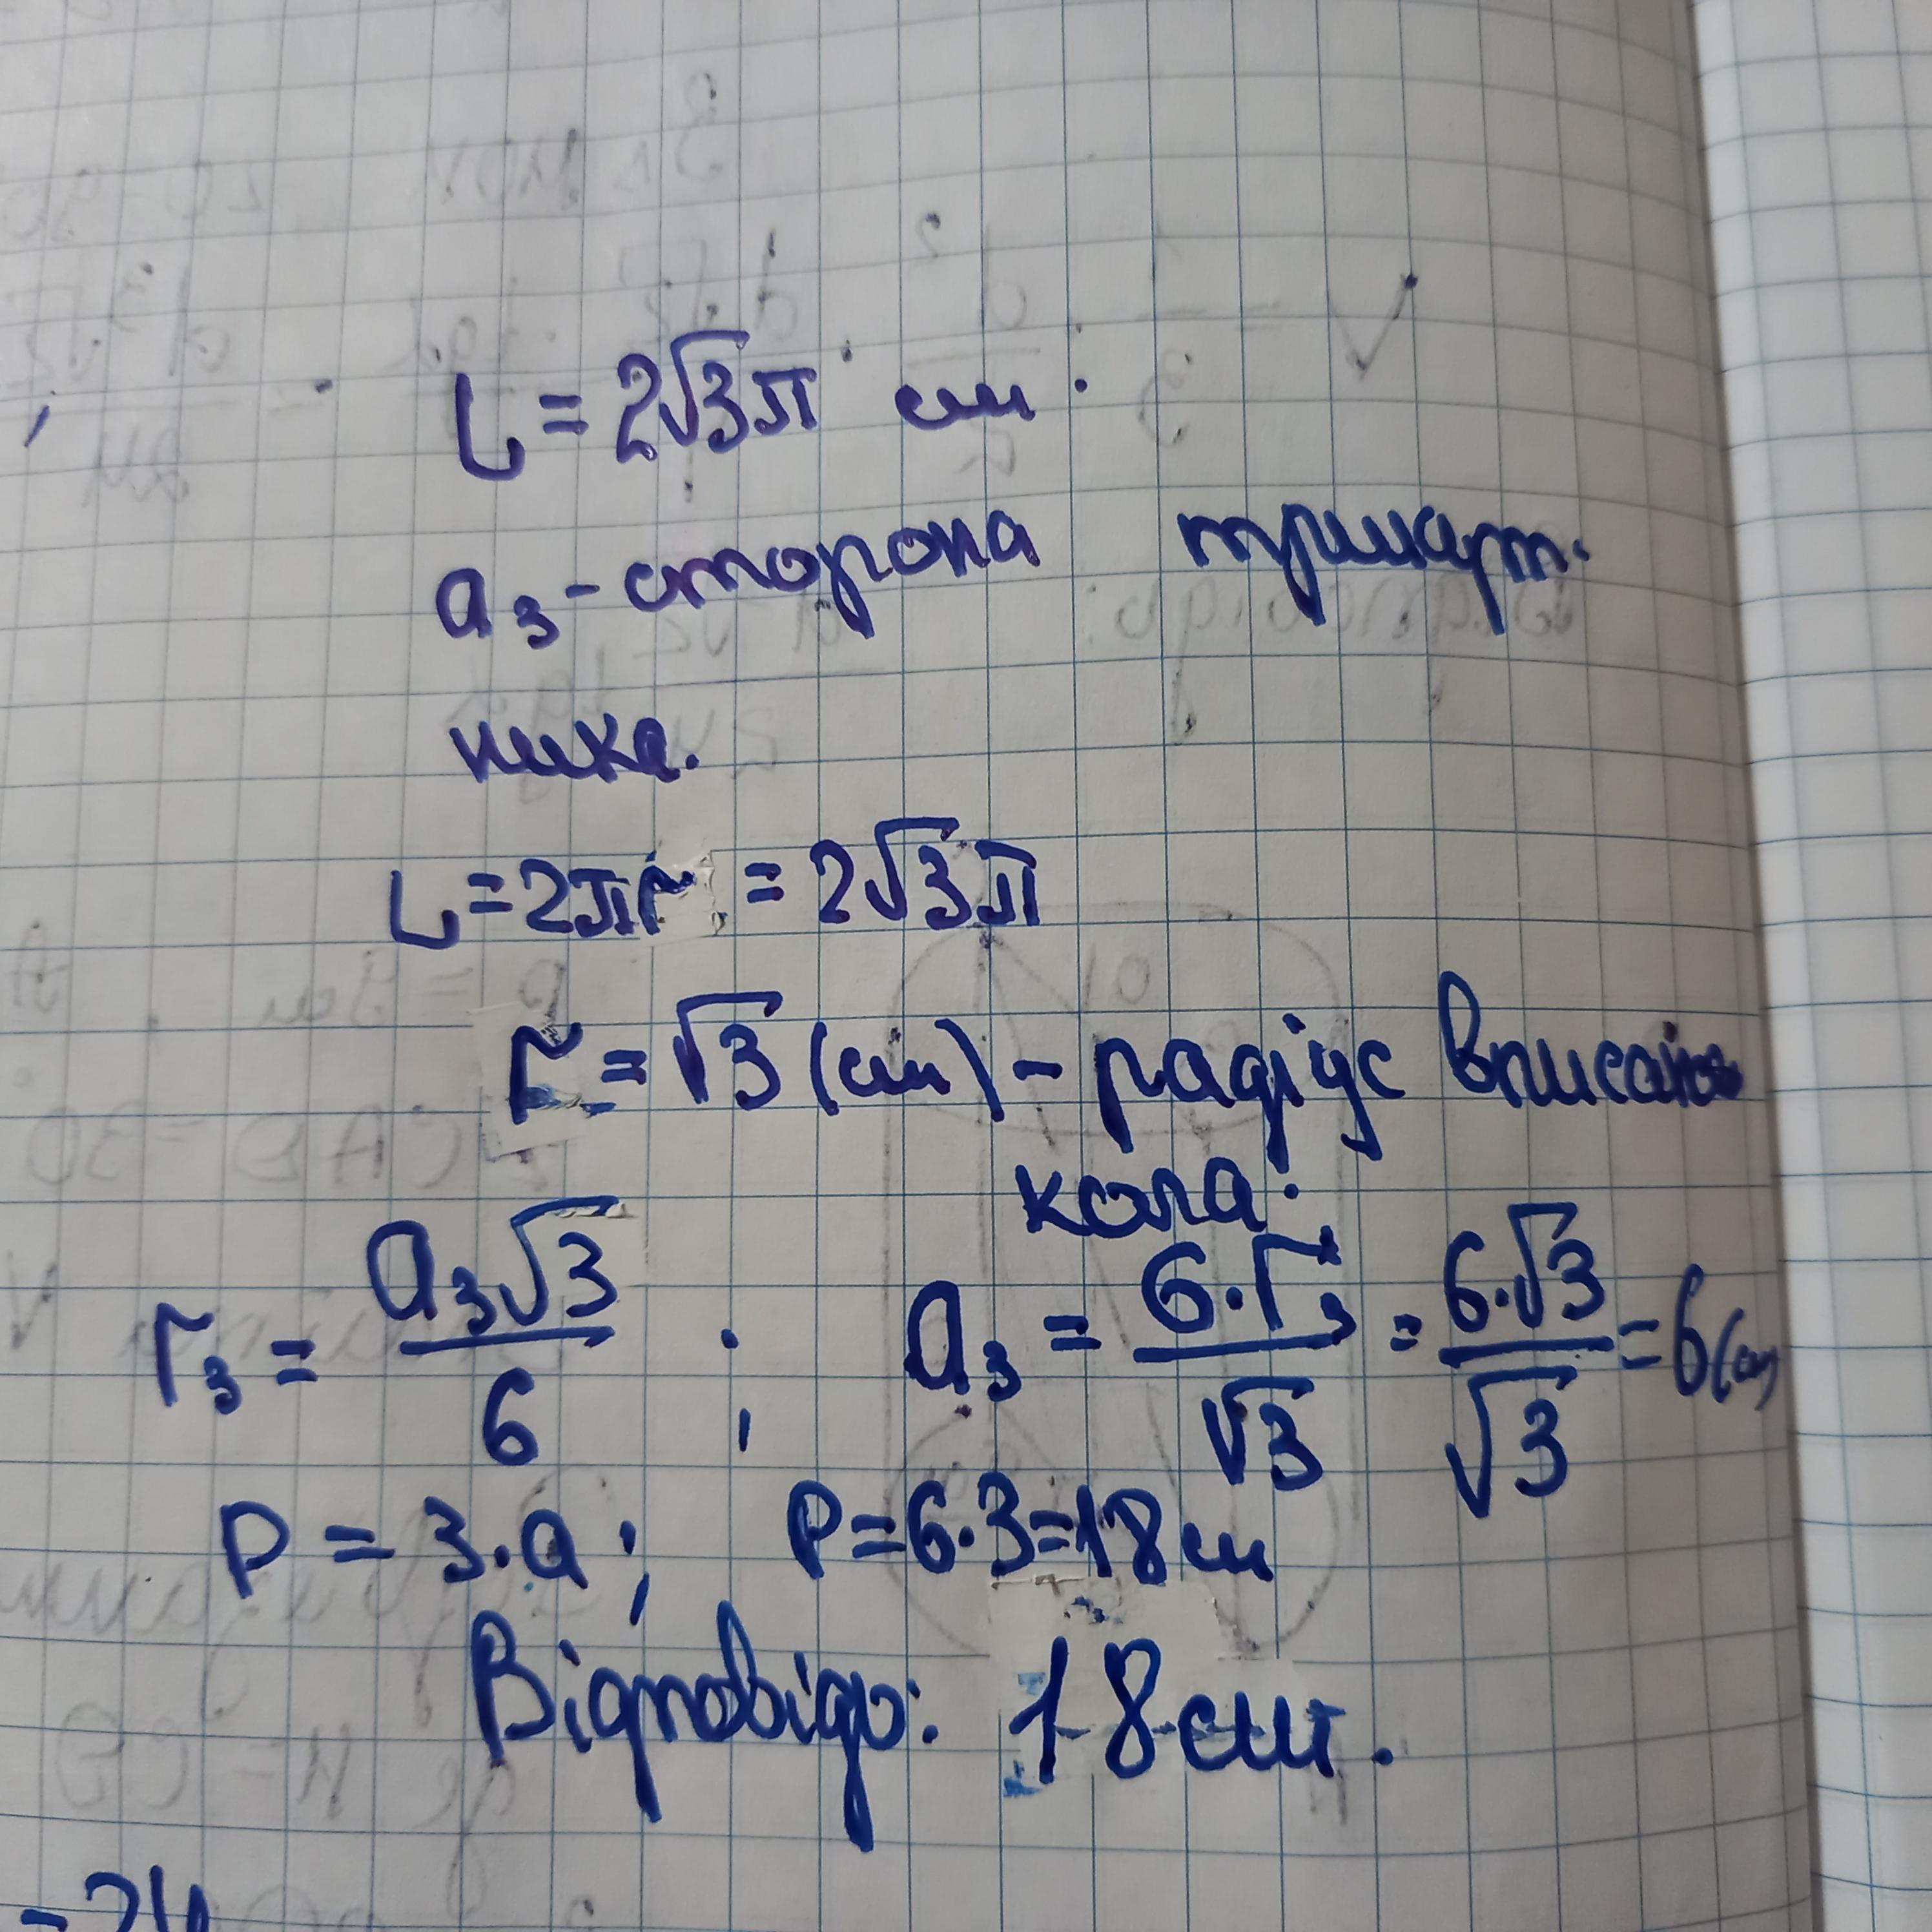 L = 2√3π см.
a₃ - сторона трикут.
ника.
L = 2πr = 2√3π
r = √3 (см) - радіус вписаного
кола.
r₃ = a₃√3 / 6 ; a₃ = 6·r₃ / √3 = 6·√3 / √3 = 6 (см)
P = 3·a ; P = 6·3 = 18 см
Відповідь: 18 см.